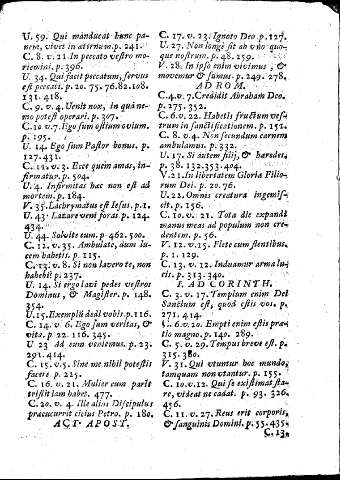 U. 59. Qui manducat hunc pa-
nem, vivet in æternum. p. 241.
C. 8. v. 21. In peccato vestro mo-
riemini. p. 396.
U. 34. Qui facit peccatum, servus
est peccati. p. 20. 75. 76. 82. 108.
131. 418.
C. 9. v. 4. Venit nox, in qua ne-
mo potest operari. p. 307.
C. 10 v. 7. Ego sum ostium ovium.
p. 195.
U. 14. Ego sum Pastor bonus. p.
127. 431.
C. 11. v. 3. Ecce quem amas, in-
firmatur. p. 504.
U. 4. Infirmitas hæc non est ad
mortem. p. 184.
V. 35. Lachrymatus est Iesus. p. 1.
U. 43. Lazare veni foras. p. 124.
434.
U. 44. Solvite eum. p. 462. 500.
C. 12. v. 35. Ambulate, dum lu-
cem habetis. p. 115.
C. 13. v. 8. Si non lavero te, non
habebis? p. 237.
U. 14. Si ergo lavi pedes vestros
Dominus, & Magister. p. 148.
354.
U. 15. Exemplũ dedi vobis. p. 116.
C. 14. v. 6. Ego sum veritas, &
vita. p. 22. 116. 345.
U. 23 Ad eum veniemus. p. 23.
291. 414.
C. 15. v. 5. Sine me nihil potestis
facere. p. 225.
C. 16. v. 21. Mulier cum parit
tristitiam habet. 477.
C. 20. v. 4. Ille alius Discipulus
præcucurrit citius Petro. p. 180.
ACT. APOST.
C. 17. v. 23. Ignoto Deo. p. 127.
U. 27. Non longè sit ab uno quo-
que nostrum. p. 48. 259.
V. 28. In ipso enim vivimus, &
movemur & sumus. p. 249. 278.
AD ROM.
C. 4. v. 7. Credidit Abraham Deo.
p. 275. 352.
C. 6. v. 22. Habetis fructum ves-
trum in sanctificationem. p. 152.
C. 8. v. 4. Non secundum carnem
ambulamus. p. 332.
U. 17. Si autem filij, & hæredes,
p. 38. 132. 353. 404.
V. 21. In libertatem Gloriæ Filio-
rum Dei. p. 20. 76.
U. 22. Omnis creatura ingemis-
cit. p. 156.
C. 10. v. 21. Tota die expandi
manus meas ad populum non cre-
dentem. p. 56.
V. 12. v. 15. Flete cum flentibus,
p. 1. 129.
C. 13. v. 12. Induamur arma lu-
cis. p. 313. 340.
I. AD CORINTH.
C. 3. v. 17. Templum enim Dei
Sanctum est, quod estis vos, p.
271. 414.
C. 6. v. 20. Empti enim estis præ-
tio magno. p. 140. 289.
C. 5. v. 29. Tempus breve est. p.
315. 380.
V. 31. Qui utuntur hoc mundo,
tamquam non utantur. p. 155.
C. 10. v. 12. Qui se existimat sta-
re, videat ne cadat. p. 93. 326.
456.
C. 11. v. 27. Reus erit corporis,
& sanguinis Domini. p. 55. 435.
C. 13.